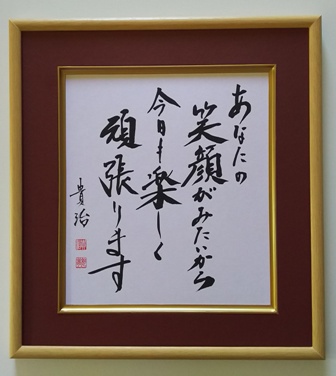 あなたの
笑顔がみたいから
今日も楽しく
頑張ります
貴治